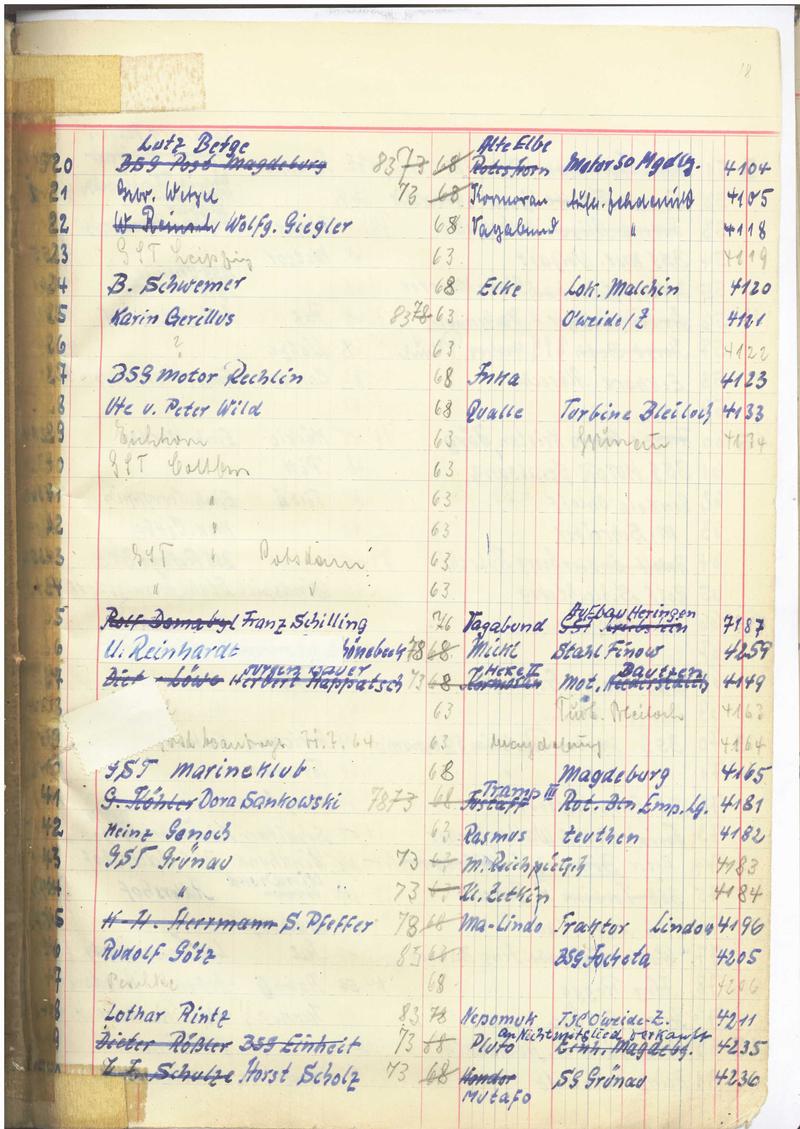 18
Lutz Betge Alte Elbe
520 BSG Post Magdeburg 83 73 68 Rotehorn Motor SO Mgdbg. 4104
21 Gebr. Wetzel 73 68 Kormoran Aufb. Zehdenick 4105
22 W. Reinsch Wolfg. Giegler 68 Vagabund " 4118
23 GST Leipzig 63 4119
24 B. Schwemer 68 Elke Lok. Malchin 4120
25 Karin Gerillus 83 78 63 O'weide/Z 4121
26 ? 63 4122
27 BSG Motor Rechlin 68 Inka 4123
8 Ute u. Peter Wild 68 Qualle Turbine Bleiloch 4133
29 Eichhorn 63 Grünau 4134
30 GST Cottbus 63
31 " 63
32 " 63
33 GST " Potsdam 63
34 " " 63
Aufbau Heringen
5 Rolf Domabyl Franz Schilling 76 Vagabund GST 7187
6 U. Reinhardt hönebeck 78 68 Micki Stahl Finow 4259
Jürgen Bauer Heke II Bautzen
7 Diet Löwe Herbert Happatsch 73 68 Kormoran Mot. 4149
63 Turb. Bleiloch 4163
7.64 63 Magdeburg 4164
40 GST Marineklub 68 Magdeburg 4165
Tramp III
41 G. Köhler Dora Sankowski 78 73 68 Fustaff Rot. Bln Emp. Lg. 4181
42 Heinz Genoch 63 Rasmus teuthen 4182
43 GST Grünau 73 63 M. Reichpietsch 4183
44 " " 73 63 Kl. Zetkin 4184
5 K-H. Herrmann S. Pfeffer 78 68 Ma-Lindo Traktor Lindow 4196
6 Rudolf Götz 83 63 BSG Jocketa 4205
7 Peschke 68 4206
8 Lothar Rintz 83 78 Nepomuk TSC O'weide-Z. 4211
an Nichtmitglied verkauft
9 Dieter Rößler BSG Einheit 73 68 Pluto Einh. Magdebg. 4235
Schulze Horst Scholz 73 68 Kondor SG Grünau 4236
Mutafo